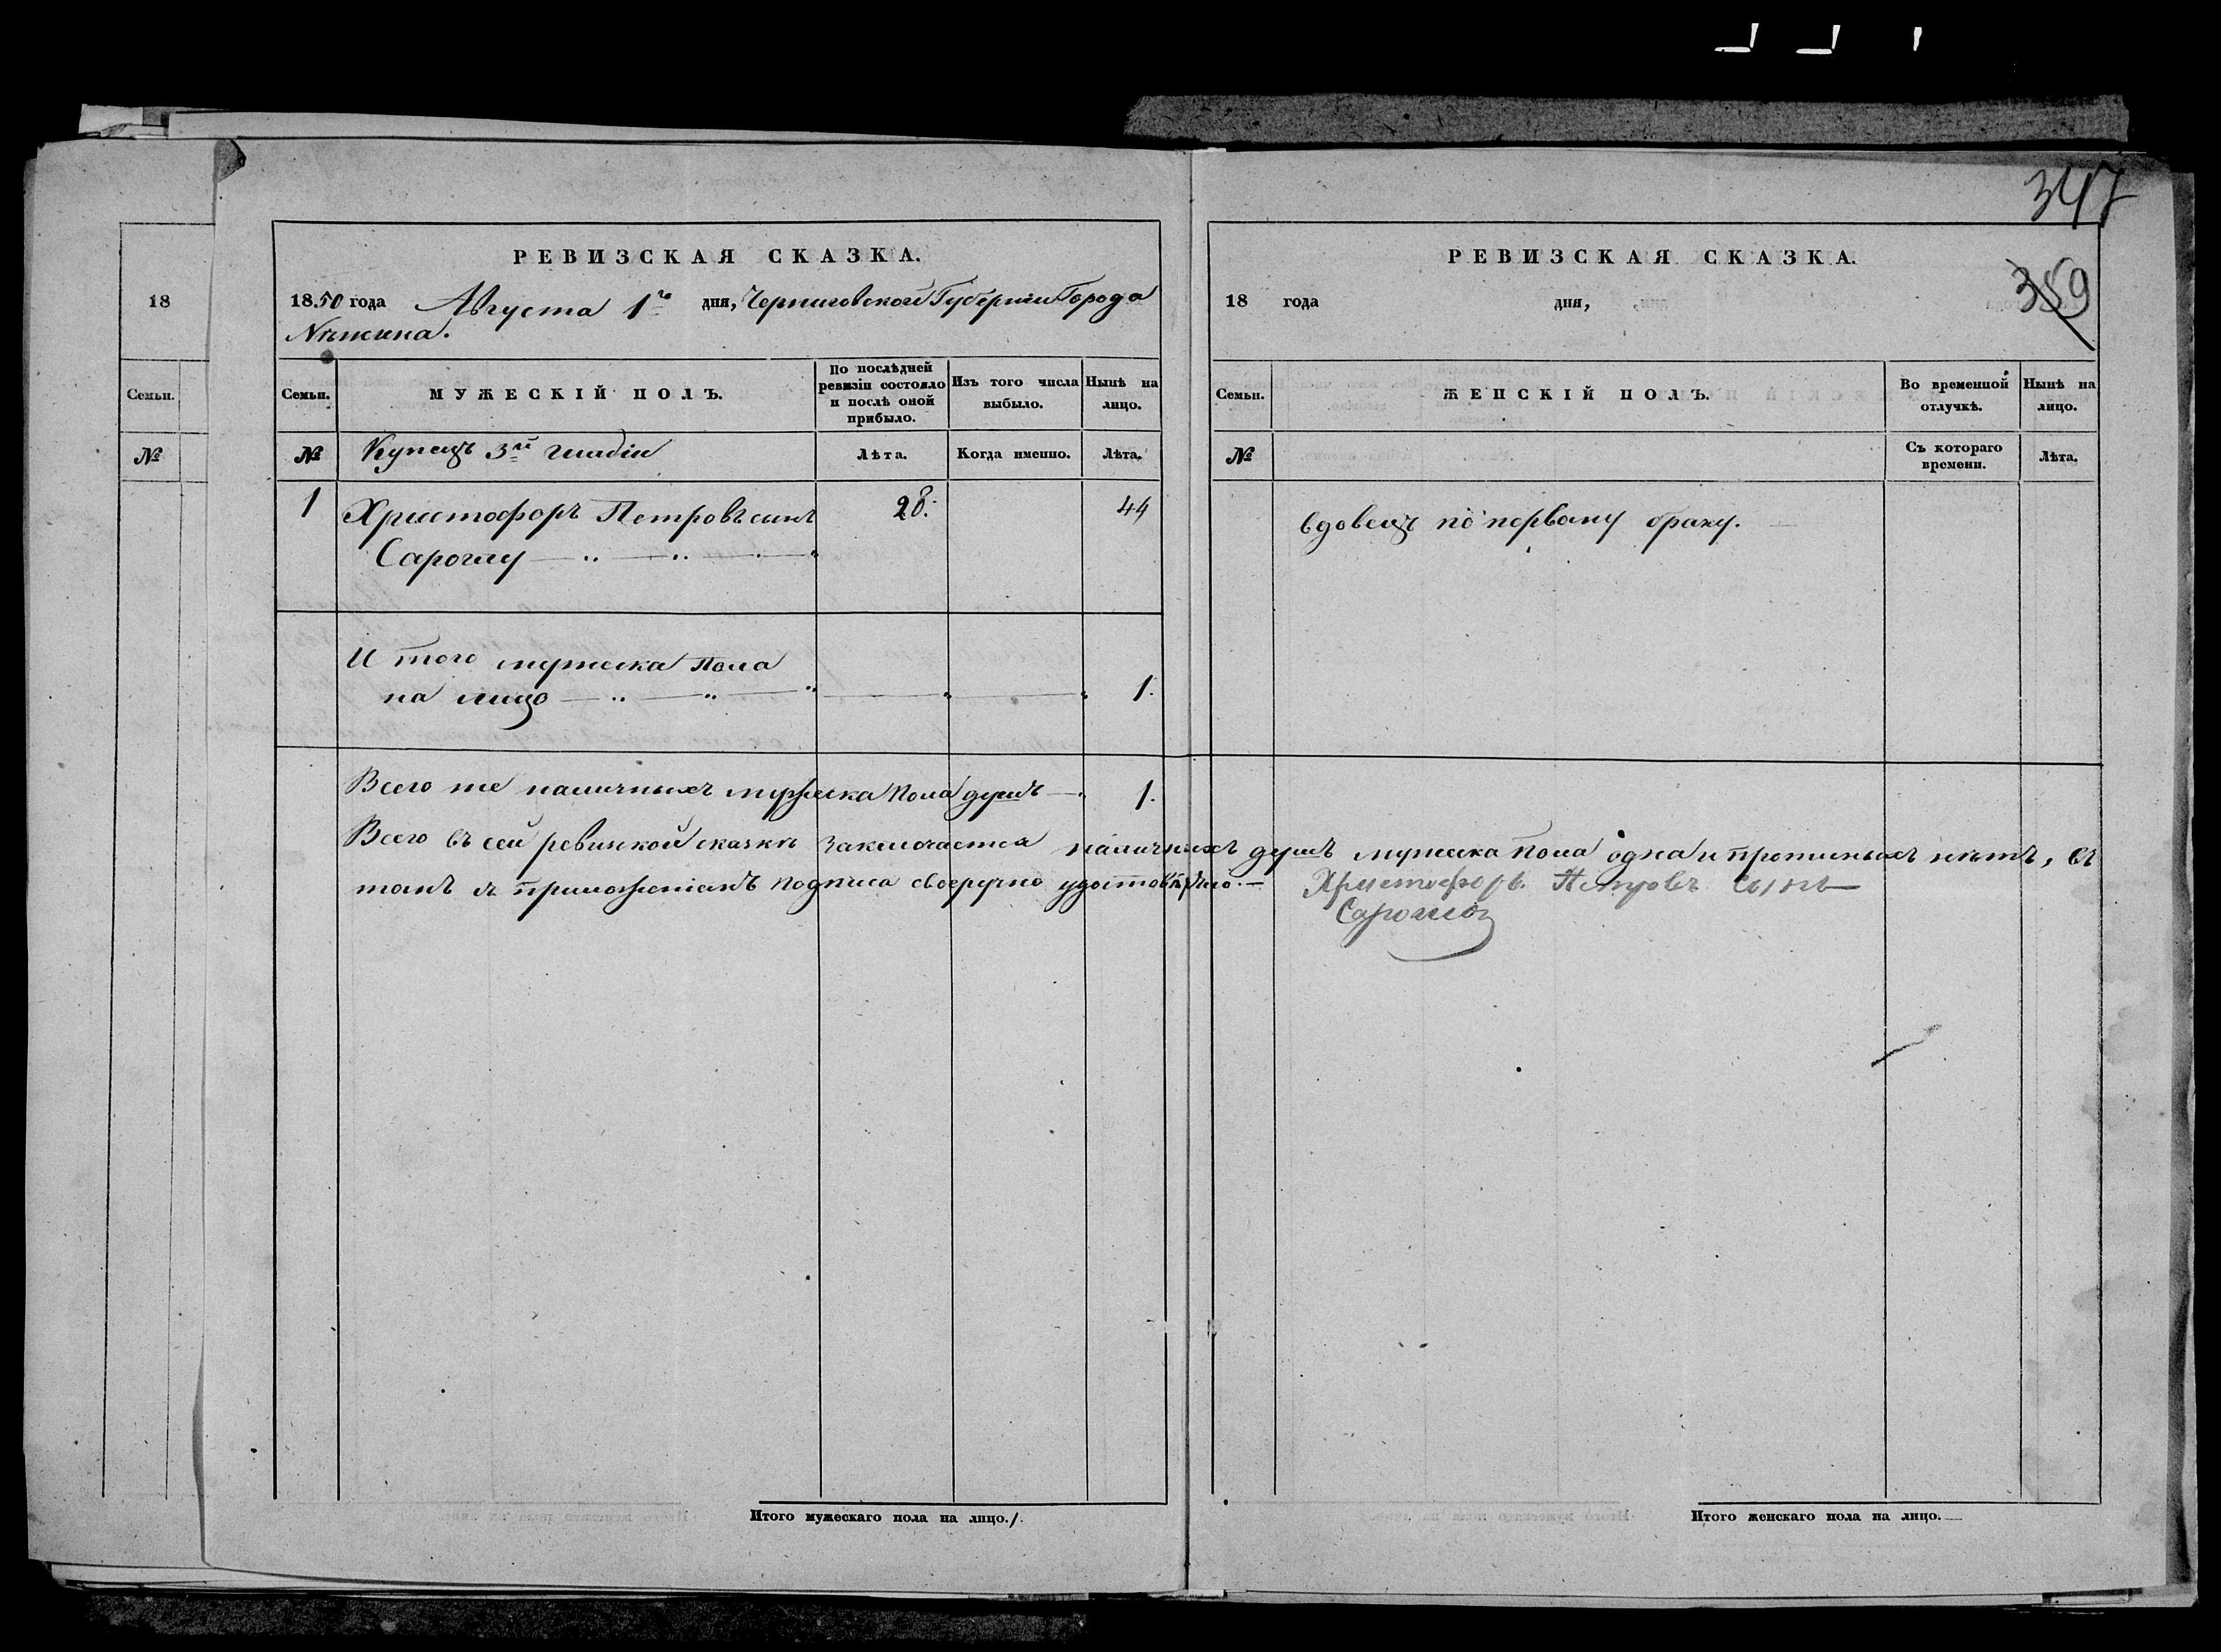 347
359
18
Семьи.
№
РЕВИЗСКАЯ СКАЗКА.
1850 года Августа 1го дня, Черниговской Губерніи Города
Нѣжина.
Семьи.
МУЖЕСКІЙ ПОЛЪ.
По послѣдней ревизіи состояло и послѣ оной прибыло.
Изъ того числа выбыло.
Нынѣ на лицо.
№
Купецъ 3й гильдіи
Лѣта.
Когда именно.
Лѣта.
1 Христофоръ Петровъ сынъ 28. 44
Сароглу
И того мужеска пола
на лицо 1.
Всего же наличныхъ мужеска пола душъ 1.
РЕВИЗСКАЯ СКАЗКА.
18 года дня,
Семьи.
ЖЕНСКІЙ ПОЛЪ.
Во временной отлучкѣ.
Нынѣ на лицо.
№
Съ котораго времени.
Лѣта.
вдовецъ по первому браку.
Всего въ сей ревизкой сказкѣ заключается наличныхъ душъ мужеска пола одна и прописныхъ нѣтъ, въ
томъ съ приложеніемъ подписа своеручно удостовѣряю.— Христофоръ Петровъ сынъ
Сароглоъ
Итого мужескаго пола на лицо. 1.
Итого женскаго пола на лицо.